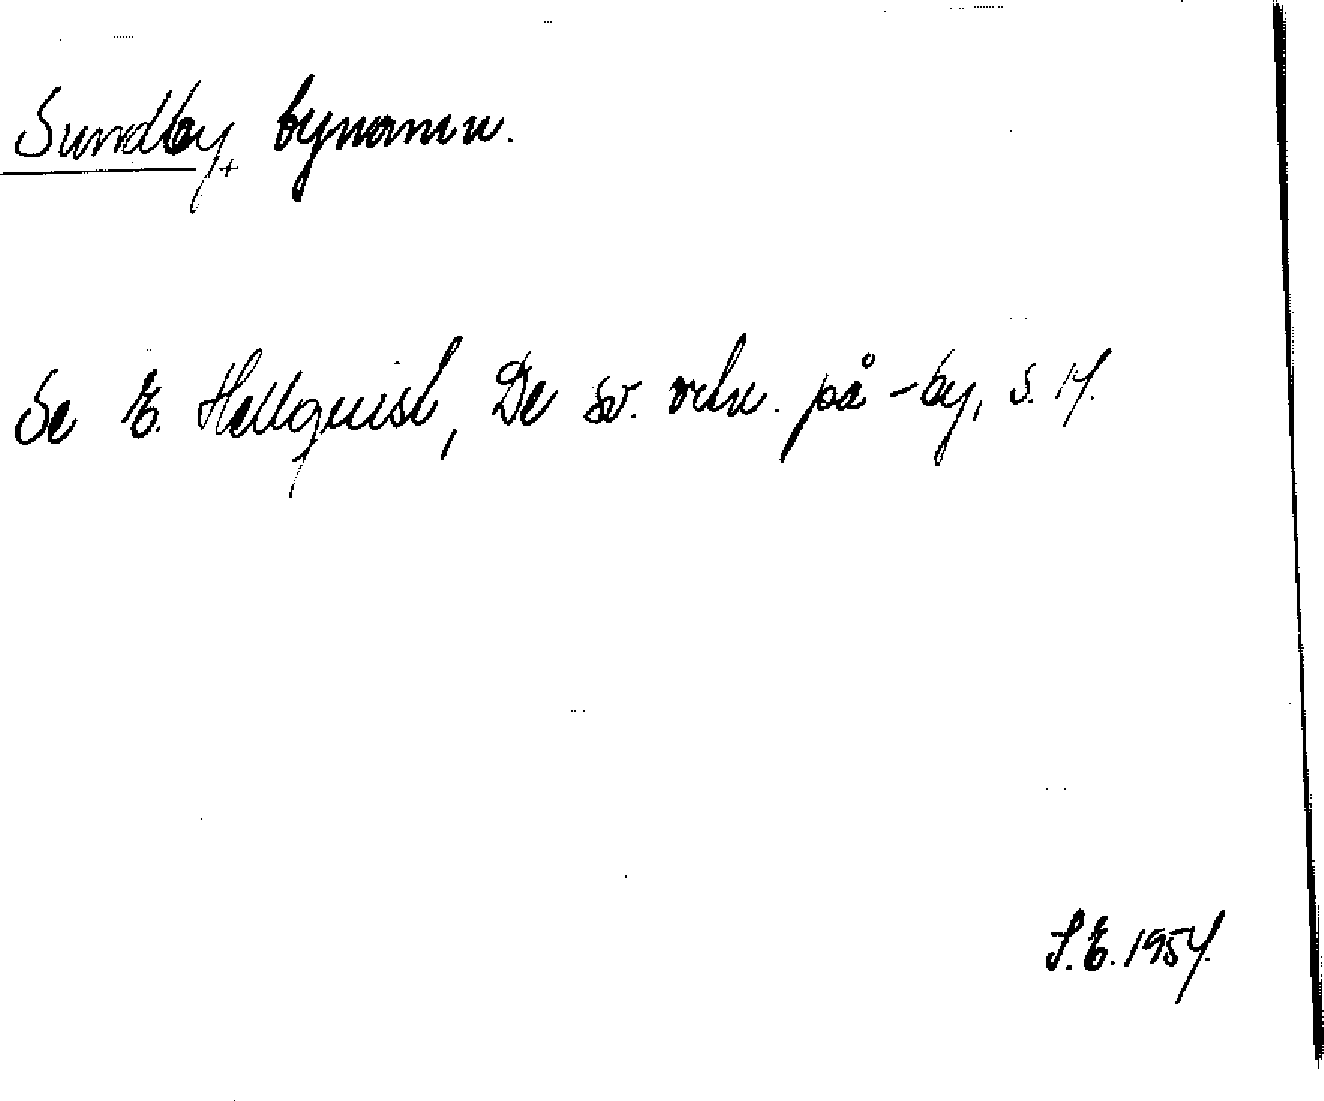 Sundby, + bynamn.
Se E. Hellquist, De sv. ortn. på -by, s. 17.
S.E. 1954.